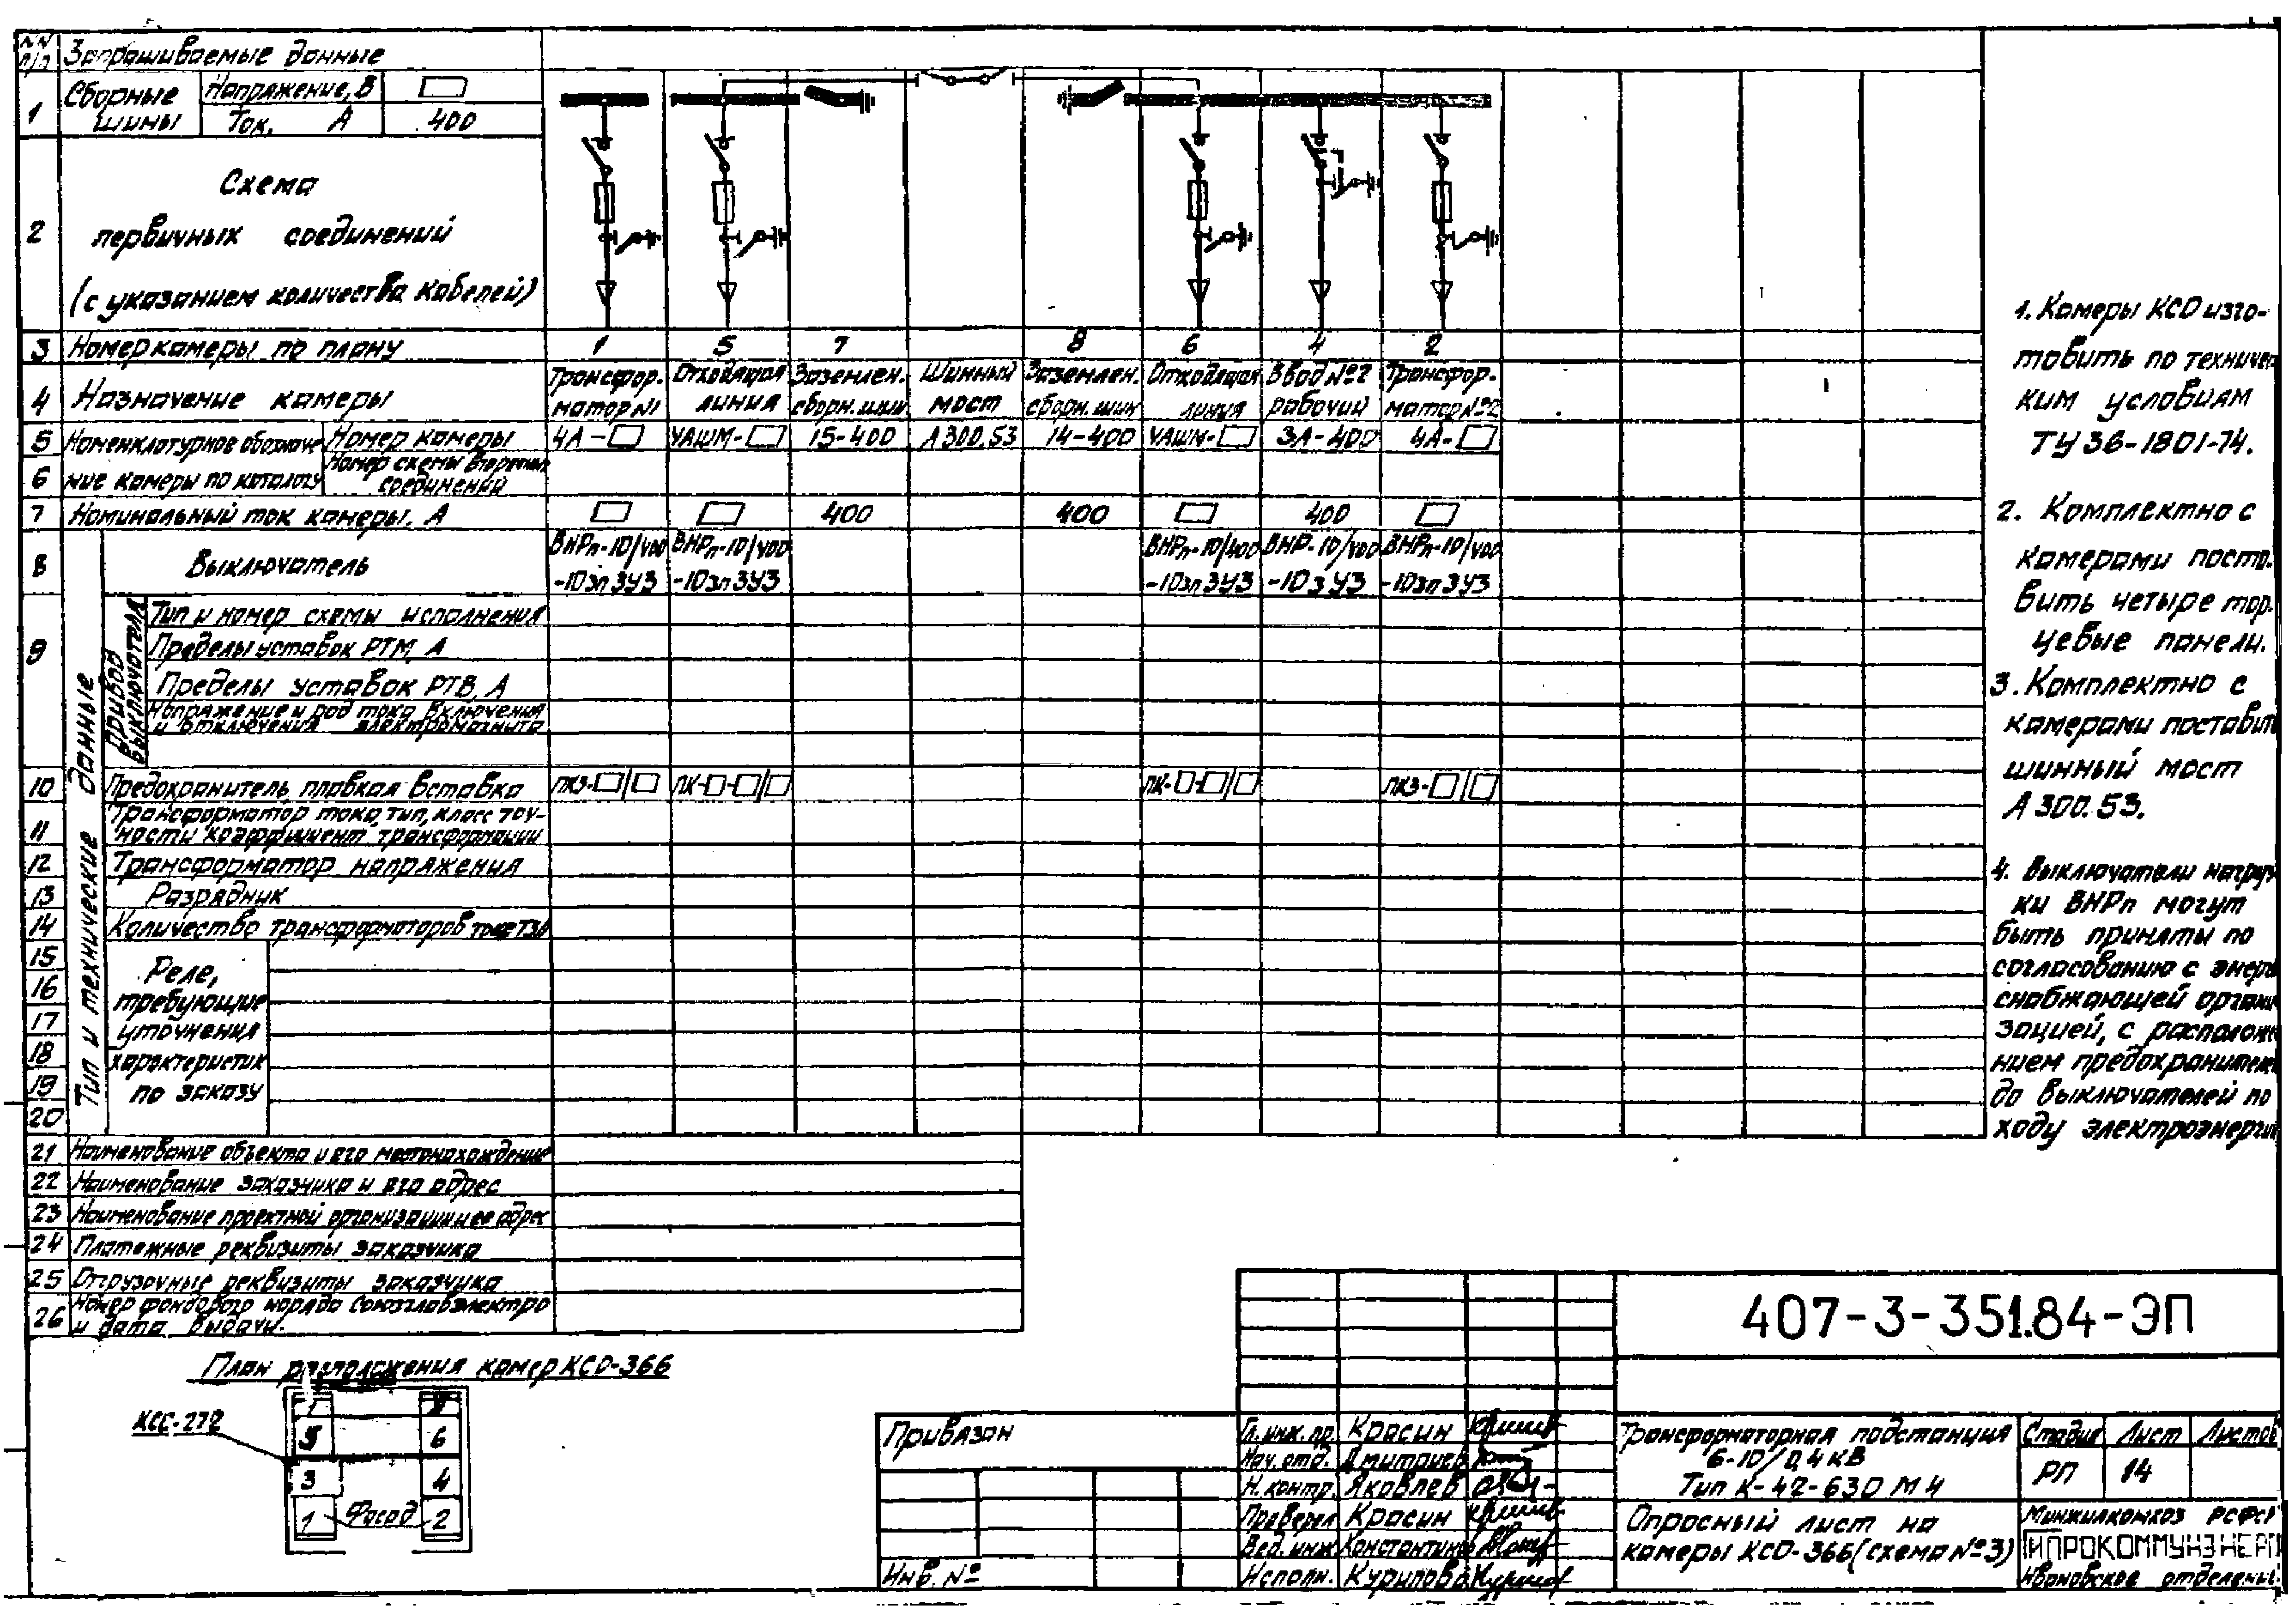 NN п/п Запрашиваемые данные
1 Сборные шины Напряжение, В
Ток, А 400
2 Схема
первичных соединений
(с указанием количества кабелей)
3 Номер камеры по плану 1 5 7 8 6 4 2
4 Назначение камеры
Трансфор- Отходящая Заземлен. Шинный Заземлен. Отходящая Ввод №2 Трансфор-
матор №1 линия сборн. шин мост сборн. шин линия рабочий матор №2
5 Номенклатурное обозначе- Номер камеры 4А-□ УАШМ-□ 15-400 А300.53 14-400 УАШМ-□ 3А-400 4А-□
6 ние камеры по каталогу Номер схемы вторичн. соединений
7 Номинальный ток камеры, А □ □ 400 400 □ 400 □
8 Выключатель
ВНРп-10/400 ВНРп-10/400 ВНРп-10/400 ВНР-10/400 ВНРп-10/400
-10зп3У3 -10зп3У3 -10зп3У3 -10з У3 -10зп3У3
9 Привод выключателя
Тип и номер схемы исполнения
Пределы уставок РТМ, А
Пределы уставок РТВ, А
Напряжение и род тока включения
и отключения электромагнита
Тип и технические данные
10 Предохранитель, плавкая вставка ПК3-□/□ ПК-□-□/□ ПК-□-□/□ ПК3-□/□
11 Трансформатор тока, тип, класс точ-
ности, коэффициент трансформации
12 Трансформатор напряжения
13 Разрядник
14 Количество трансформаторов тока ТЗЛ
15 Реле,
16 требующие
17 уточнения
18 характеристик
19 по заказу
20
21 Наименование объекта и его местонахождение
22 Наименование заказчика и его адрес
23 Наименование проектной организации и ее адрес
24 Платежные реквизиты заказчика
25 Отгрузочные реквизиты заказчика
26 Номер фондового наряда Союзглавэлектро
и дата выдачи.
1. Камеры КСО изго-
товить по техничес
ким условиям
ТУ36-1801-74.
2. Комплектно с
камерами поста-
вить четыре тор-
цевые панели.
3. Комплектно с
камерами поставить
шинный мост
А300.53.
4. Выключатели нагруз
ки ВНРп могут
быть приняты по
согласованию с энерго
снабжающей органи
зацией, с расположе
нием предохранителей
до выключателей по
ходу электроэнергии
План расположения камер КСО-366
КСС-272
5 6
3 4
1 Фасад 2
407-3-351.84-ЭП
Привязан
Инв. №
Гл. инж. пр. Красин
Нач. отд. Дмитриев
Н. контр. Яковлев
Проверил Красин
Вед. инж Константинов
Исполн. Курилова
Трансформаторная подстанция
6-10/0,4 кВ
Тип К-42-630 М4
Стадия Лист Листов
РП 14
Опросный лист на
камеры КСО-366 (схема №3)
Минжилкомхоз РСФСР
ГИПРОКОММУНЭНЕРГО
Ивановское отделение